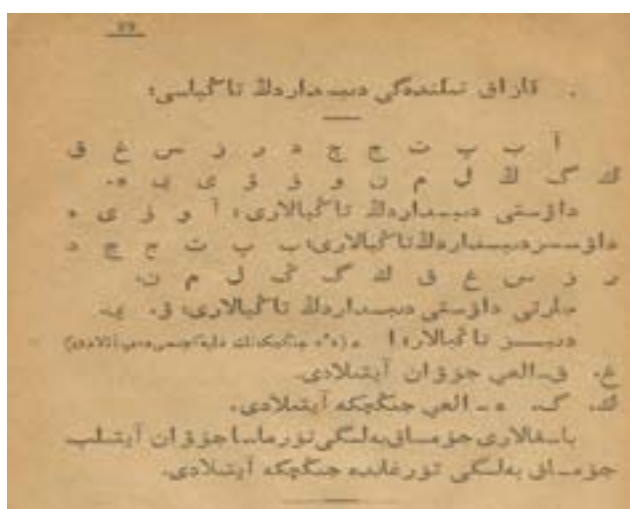 قازاق تىلىندەگى دىبىسداردىڭ تاڭباسى؛
آ ب پ ت ج چ د ر ز س غ ق
ك گ ڭ ل م ن و ۇ ۋ ى ي ە.
داۋستى دىبىسداردىڭ تاڭبالارى؛ آ و ۇ ى ە
داۋسسز دىبىسداردىڭ تاڭبالارى؛ ب پ ت ج چ د
ر ز س غ ق ك گ ڭ ل م ن.
جارتى داۋستى دىبىسداردىڭ تاڭبالارى؛ ۋ. ي.
دىبىسسز تاڭبالار؛ ا
غ. ق_العي جوۋان آيتىلادى.
ك. گ. ە _ العي جىڭىچكە آيتىلادى.
باسغالارى جۋمساق بەلگى تۇرماسا جوۋان آيتىلىپ
جۋمساق بەلگى تۇرغاندە جىڭىچكە آيتىلادى.